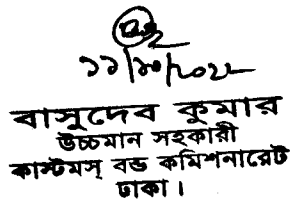 ১১/১০/২০২২
বাসুদেব কুমার
উচ্চমান সহকারী
কাস্টমস্ বন্ড কমিশনারেট
ঢাকা।